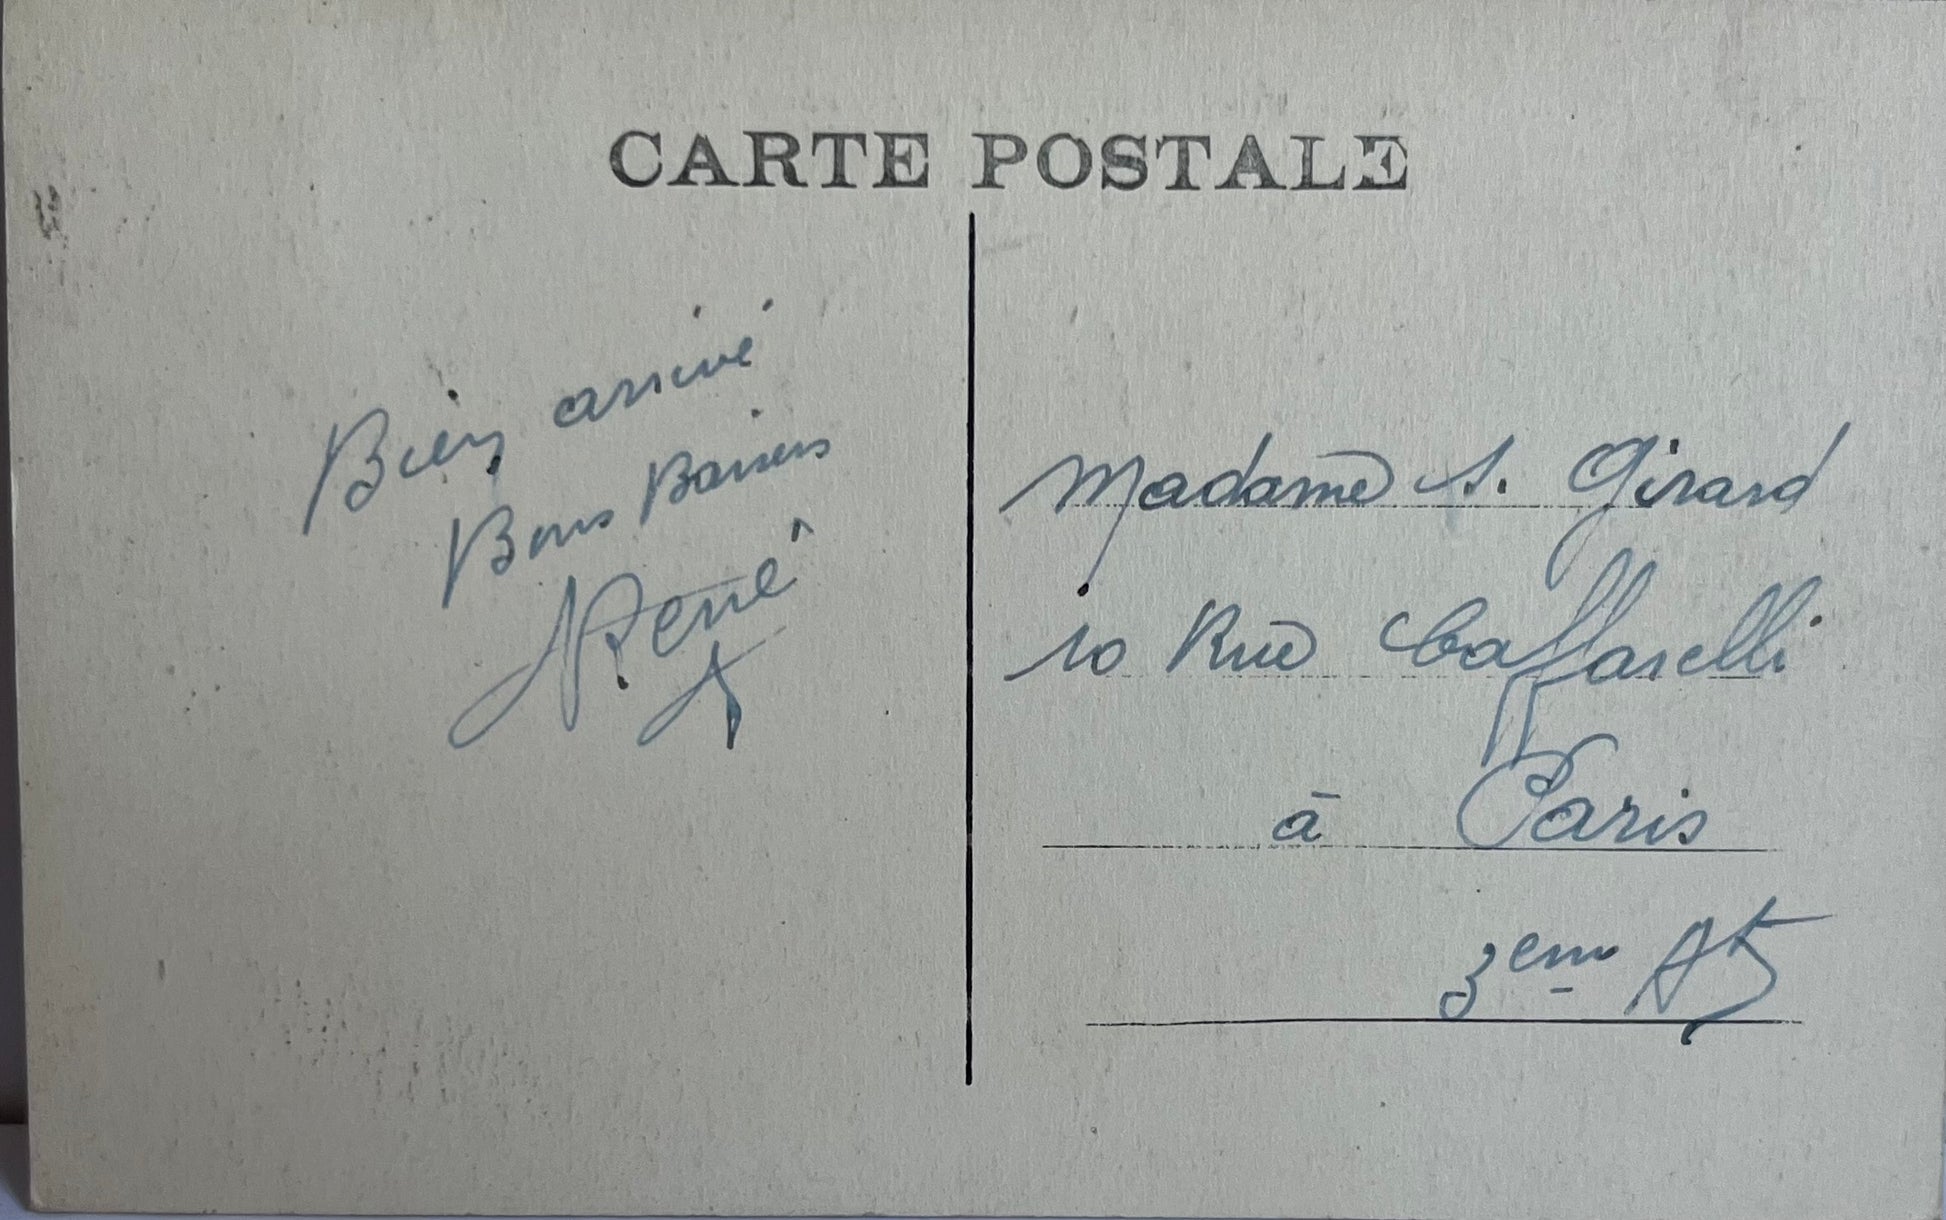 CARTE POSTALE
Bien arrivé
Bons Baisers
René
Madame S. Girard
10 Rue Caffarelli
à Paris
3eme At